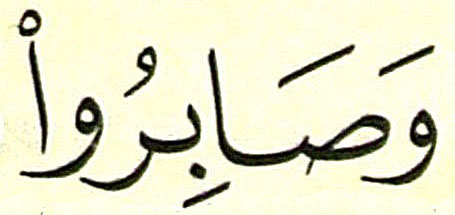 وَصَابِرُواْ